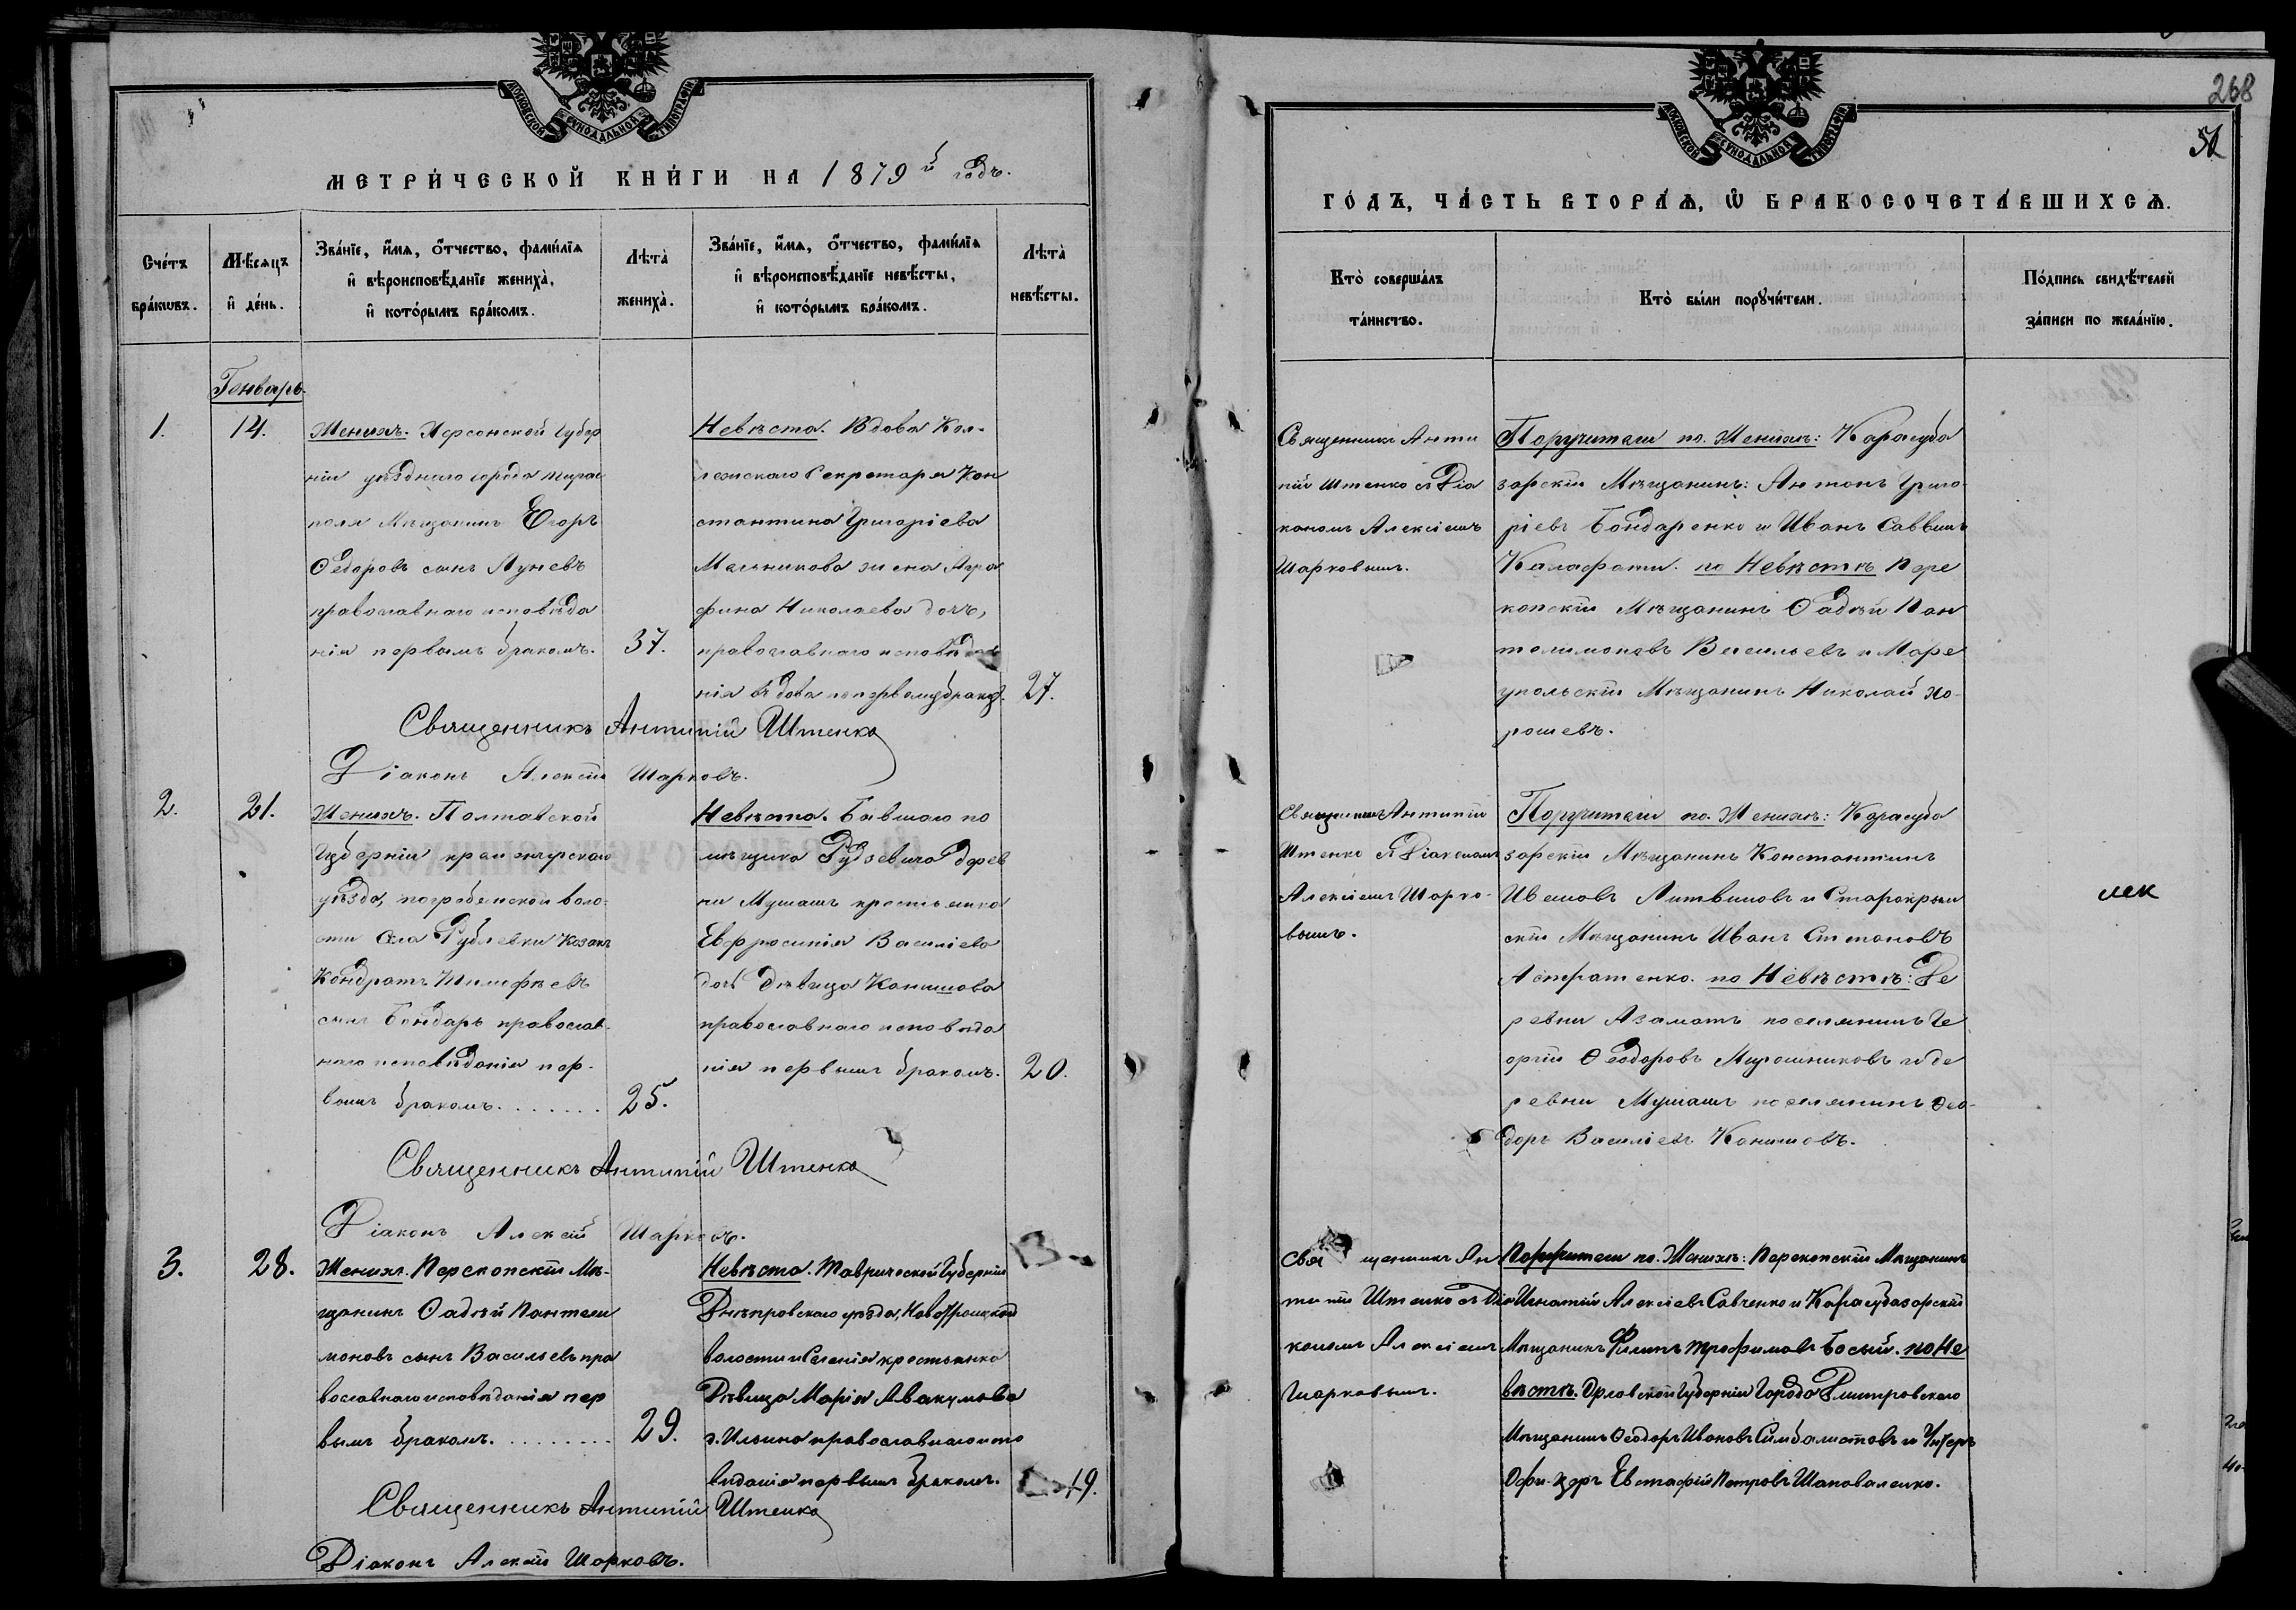 МОСКОВСКОЙ СѴНОДАЛЬНОЙ ТИПОГРАФІИ
МЕТРИ́ЧЕСКОЙ КНИ́ГИ НА 1879й годъ.
Сче́тъ бра́кѡвъ.
Мѣ́сяцъ и҆ де́нь.
Зва́нїе, и҆́мѧ, о҆́тчество, фами́лїѧ
и҆ вѣроисповѣ́данїе жениха̀,
и҆ кото́рымъ бра́комъ.
Лѣта̀ жениха̀.
Зва́нїе, и҆́мѧ, о҆́тчество, фами́лїѧ
и҆ вѣроисповѣ́данїе невѣ́сты,
и҆ кото́рымъ бра́комъ.
Лѣта̀ невѣ́сты.
Генварь.
1.
14.
Женихъ. Херсонской Губер
ніи уѣзднаго города Тирас
поля Мѣщанинъ Егоръ
Ѳедоровъ сынъ Луневъ
православнаго исповѣда
нія первымъ бракомъ.
37.
Невѣста. Вдова Кол-
лежскаго Секретаря Кон
стантина Григоріева
Мельникова жена Агра
фина Николаева дочь,
православнаго исповѣда
нія вдова по первому браку.
27.
Священникъ Антипій Штенко
Діаконъ Алексій Шарковъ.
2.
21.
Женихъ. Полтавской
Губерніи кременчугскаго
уѣзда, погребенской воло-
сти села Рублевки Козакъ
Кондратъ Тимофѣевъ
сынъ Бондарь православ-
наго исповѣданія пер-
вымъ бракомъ.......
25.
Невѣста. Бывшаго по
мѣщика Рудзевича дерев
ни Мушашъ крестьянка
Евфросинія Василіева
дочь дѣвица Конишова
православнаго исповѣда
нія первымъ бракомъ.
20.
Священникъ Антипій Штенко
Діаконъ Алексій Шарковъ.
3.
28.
Женихъ. Перекопскій Мѣ-
щанинъ Ѳадѣй Пантели
моновъ сынъ Васильевъ пра
вославнаго исповѣданія пер
вымъ бракомъ.........
29.
Невѣста. Таврической Губерніи
Днѣпровскаго уѣзда, Новотроицкой
волости и Селенія крестьянка
Дѣвица Марія Авакумова
д. Ильина православнаго испо
вѣданія первымъ бракомъ.
19.
Священникъ Антипій Штенко
Діаконъ Алексій Шарковъ.
268
51
МОСКОВСКОЙ СѴНОДАЛЬНОЙ ТИПОГРАФІИ
ГО́ДЪ, ЧА́СТЬ ВТОРА́Ѧ, Ѡ҆ БРАКОСОЧЕТА́ВШИХСѦ.
Кто̀ соверша́лъ
та́инство.
Кто̀ бы́ли порꙋчи́тели.
По́дпись свидѣ́телей
за́писи по жела́нїю.
Священникъ Анти
пій Штенко съ Діа
кономъ Алексіемъ
Шарковымъ.
Поручители по Женихѣ: Карасуба
зарскій Мѣщанинъ: Антонъ Григо-
ріевъ Бондаренко и Иванъ Саввинъ
Калафати. по Невѣстѣ Пере
копскій Мѣщанинъ Ѳадѣй Пан
толимоновъ Васильевъ и Маре
упольскій Мѣщанинъ Николай Хо-
рошевъ.
Священникъ Антипій
Штенко съ Діакономъ
Алексіемъ Шарко-
вымъ.
Поручители по Женихѣ: Карасуба
зарскій Мѣщанинъ Константинъ
Ивановъ Литвиновъ и Старокрым
скій Мѣщанинъ Иванъ Степановъ
Астратенко. по Невѣстѣ: Де
ревни Азаматъ поселянинъ Ге
оргій Ѳеодоровъ Мирошниковъ и де
ревни Мушашъ поселянинъ Ѳео-
доръ Василіевъ Конишовъ.
Священникъ Ан
типій Штенко съ Діа
кономъ Алексіемъ
Шарковымъ.
Поручители по Женихѣ: Перекопскій Мѣщанинъ
Игнатій Алексіевъ Савченко и Карасубазарскій
Мѣщанинъ Филипъ Трофимовъ Босый. по Не
вѣстѣ. Орловской Губерніи Города Дмитровскаго
Мѣщанинъ Ѳеодоръ Ивановъ Симбалистовъ и Унтеръ
Офи-церъ Евстафій Петровъ Шаповаленко.